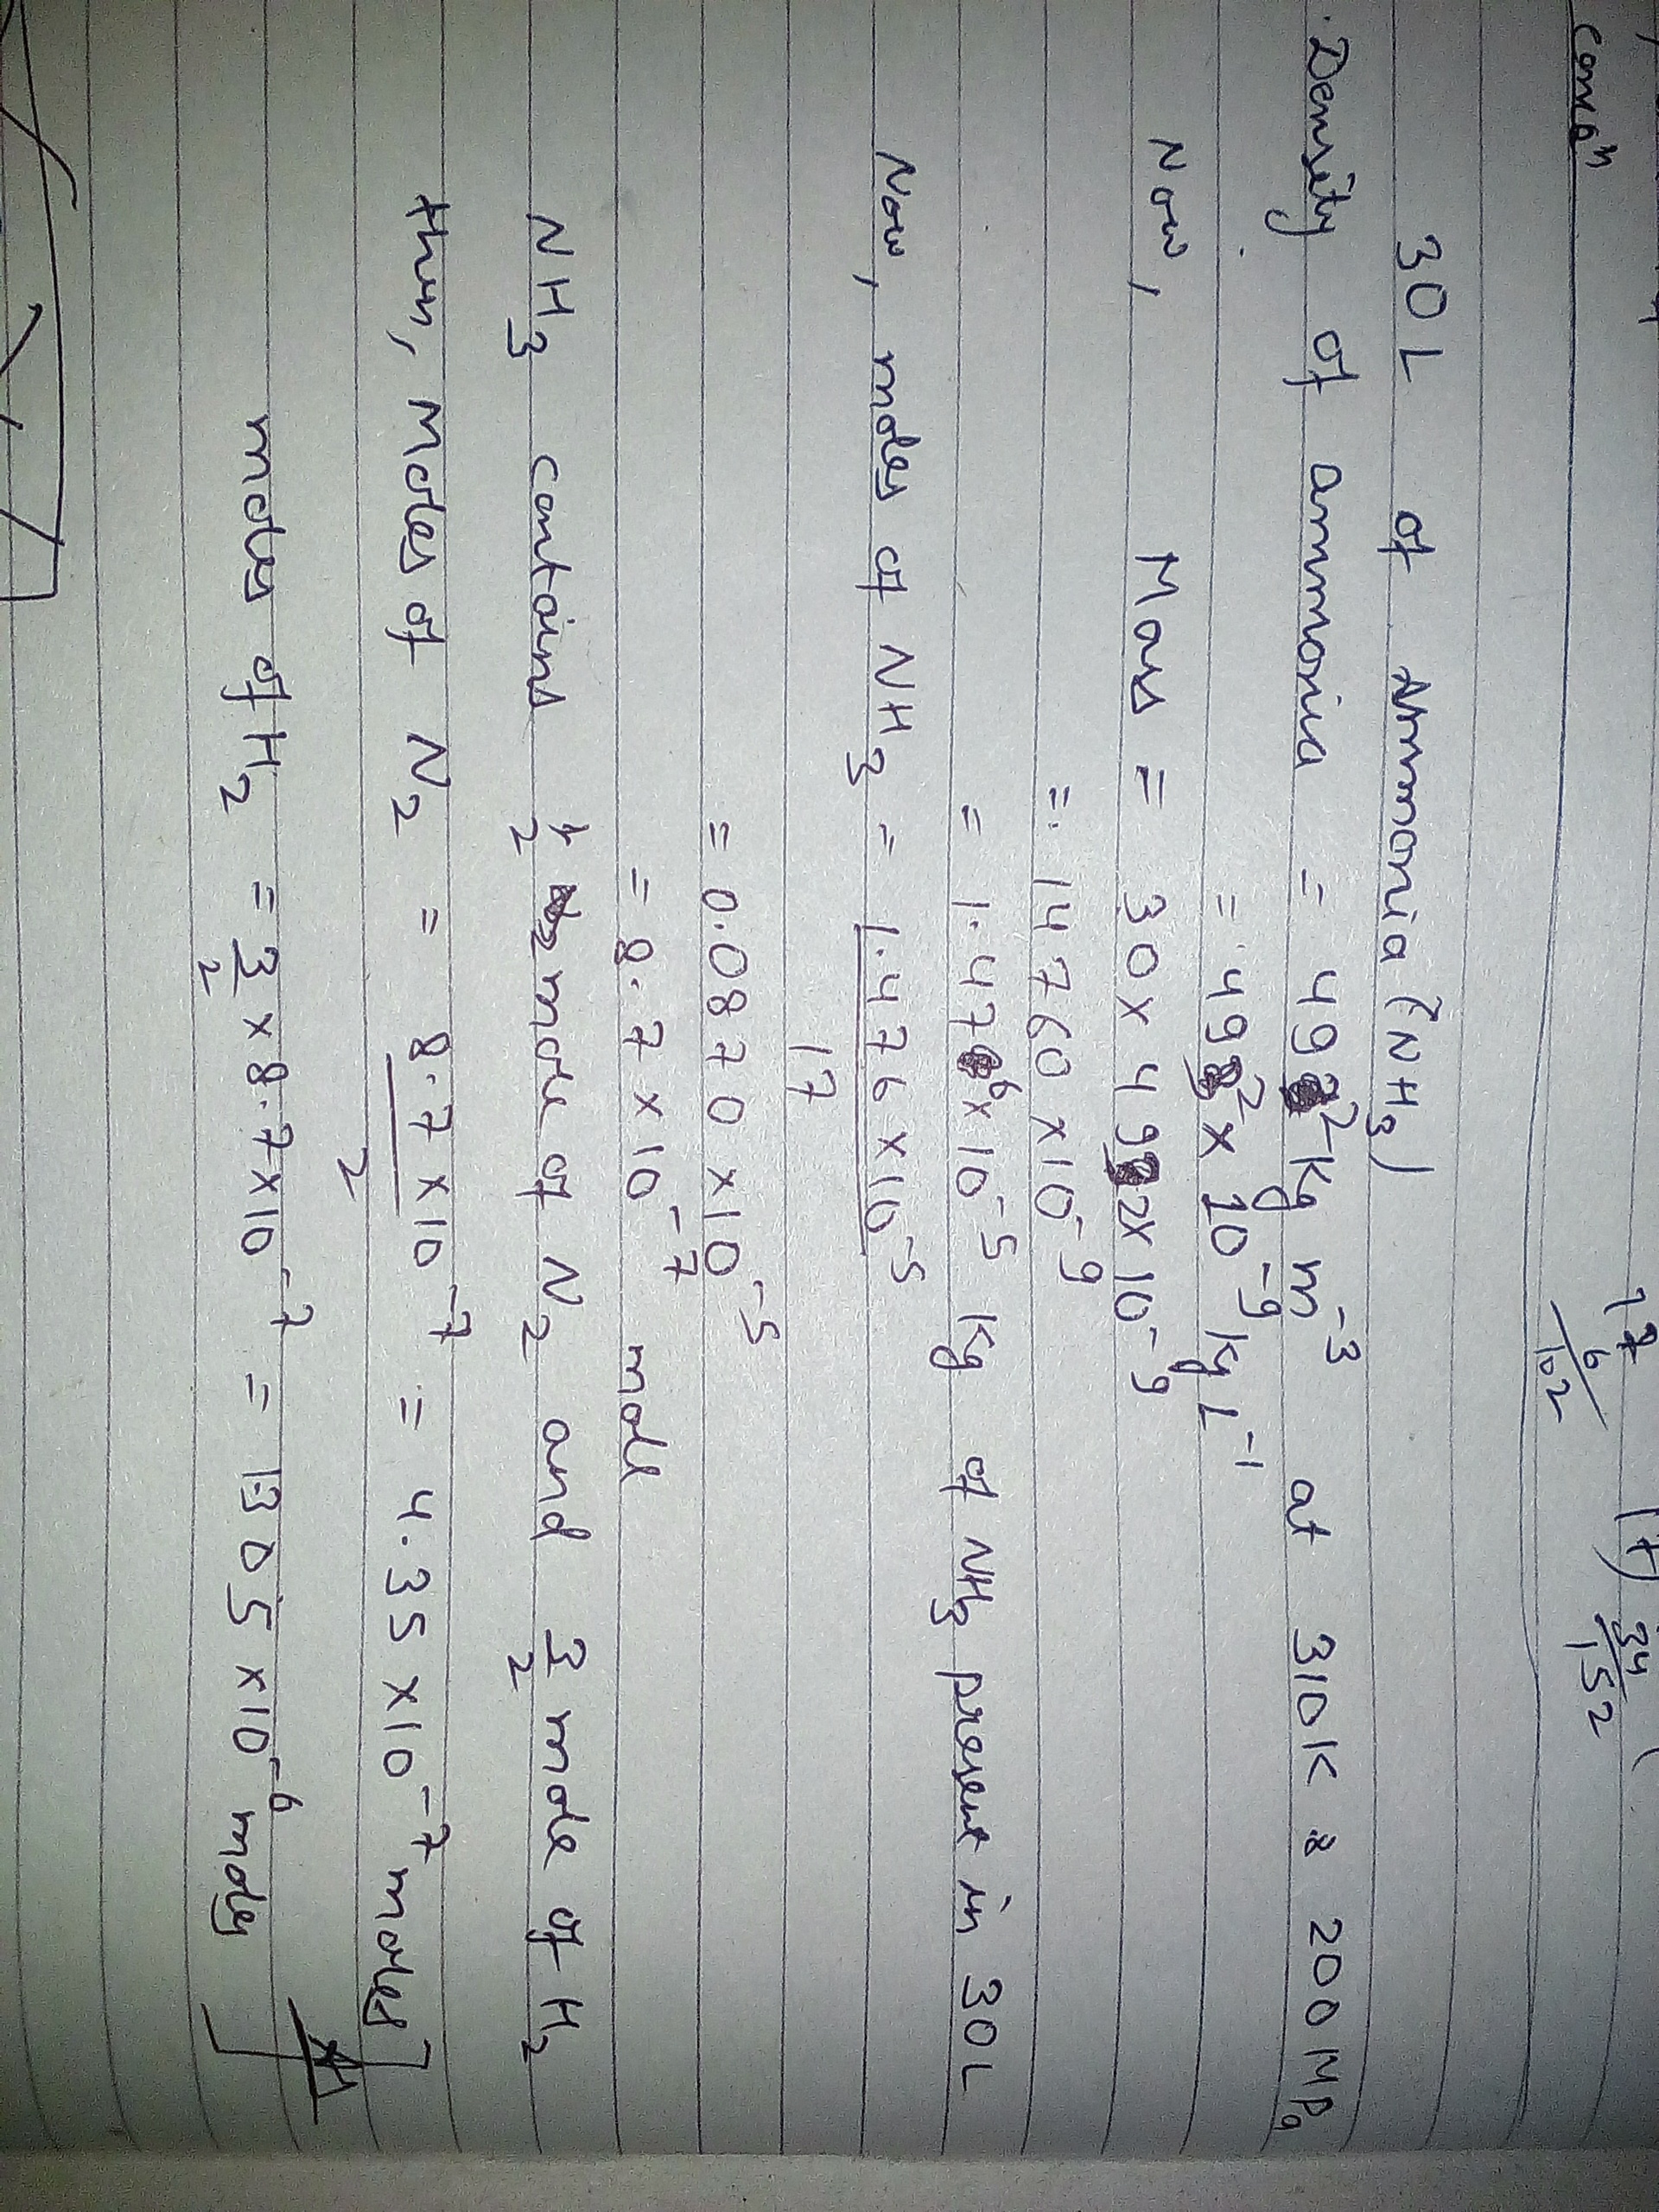 comoⁿ
17
6
102
17)
34
152
30L of Ammonia (NH₃)
Density of ammonia = 492 kg m⁻³ at 310K & 200 MPa
= 492 × 10⁻⁹ kg L⁻¹
Now, Mass = 30 × 492 × 10⁻⁹
= 14760 × 10⁻⁹
= 1.476 × 10⁻⁵ kg of NH₃ present in 30L
Now, moles of NH₃ = 1.476 × 10⁻⁵
17
= 0.0870 × 10⁻⁵
= 8.7 × 10⁻⁷ mole
NH₃ contains 1/2 mole of N₂ and 3/2 mole of H₂
then, moles of N₂ = 8.7 × 10⁻⁷/2 = 4.35 × 10⁻⁷ moles]
moles of H₂ = 3/2 × 8.7 × 10⁻⁷ = 1.305 × 10⁻⁶ moles]